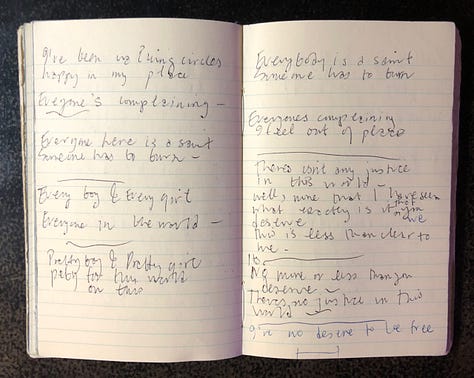 I've been walking circles
happy in my place
Everyone's complaining –
Everyone here is a saint
someone has to burn –
Every boy & Every girl
Everyone in the world –
Pretty boy & Pretty girl
for this world
on this
Everybody is a saint
someone has to burn
Everyones complaining
I feel out of place
There isn't any justice
in this world –
well, none that I have seen
what exactly is it
deserve
this is less than clear to
me –
No more or less than you
deserve –
There's no justice in this
world –
I've no desire to be free